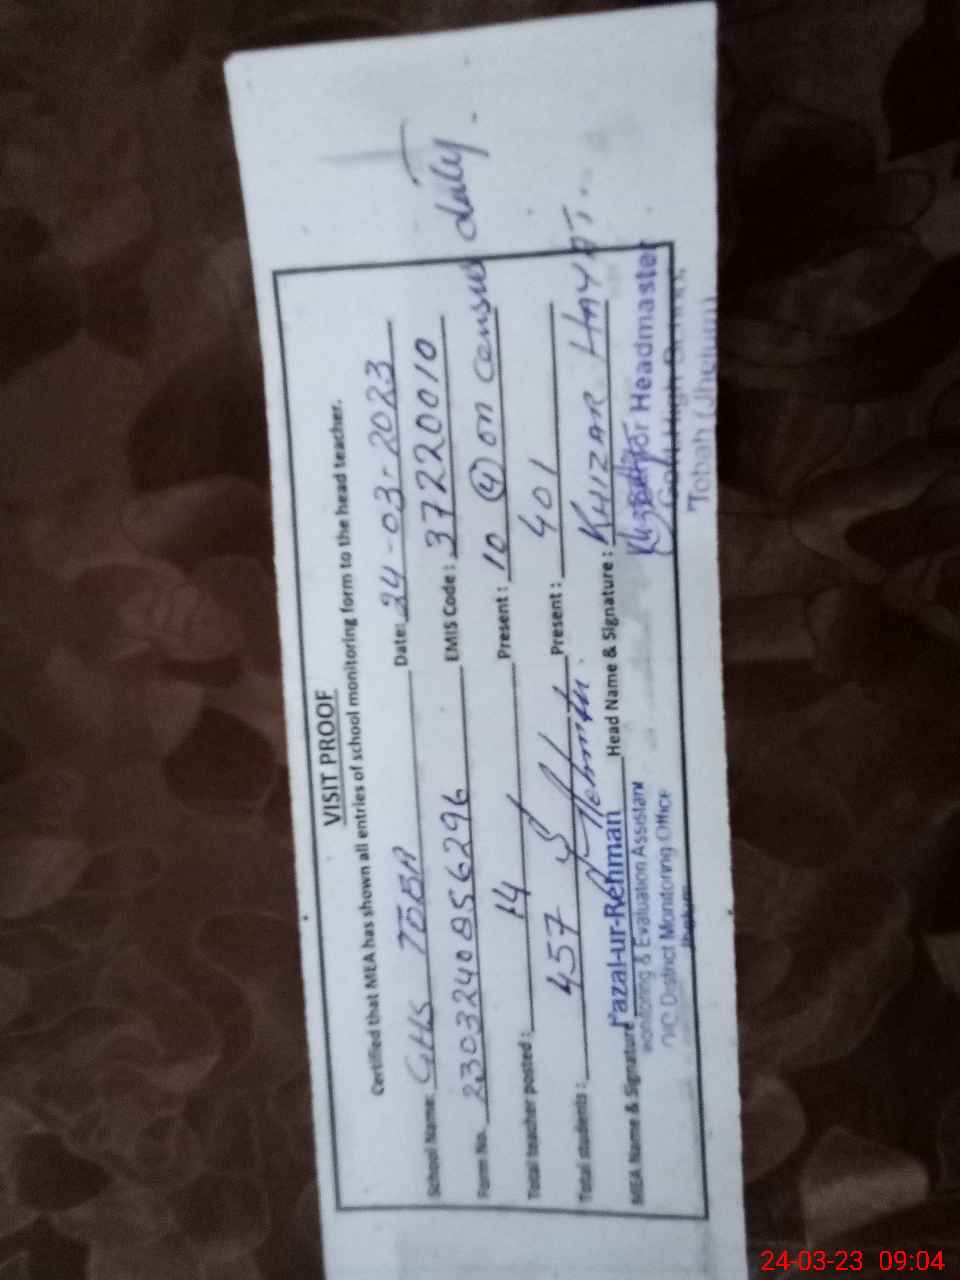 VISIT PROOF
Certified that MEA has shown all entries of school monitoring form to the head teacher.
School Name: GHS TOBA Date: 24-03-2023
Form No. 2303240856296 EMIS Code: 37220010
Total teacher posted: 14 Present: 10 (4) on census duty.
Total students: 457 Present: 401
MEA Name & Signature Head Name & Signature: KHIZAR HAYAT
Fazal-ur-Rehman
Monitoring & Evaluation Assistant
O/O District Monitoring Office
Headmaster
Govt. High School,
Tobah (Jhelum)
24-03-23 09:04